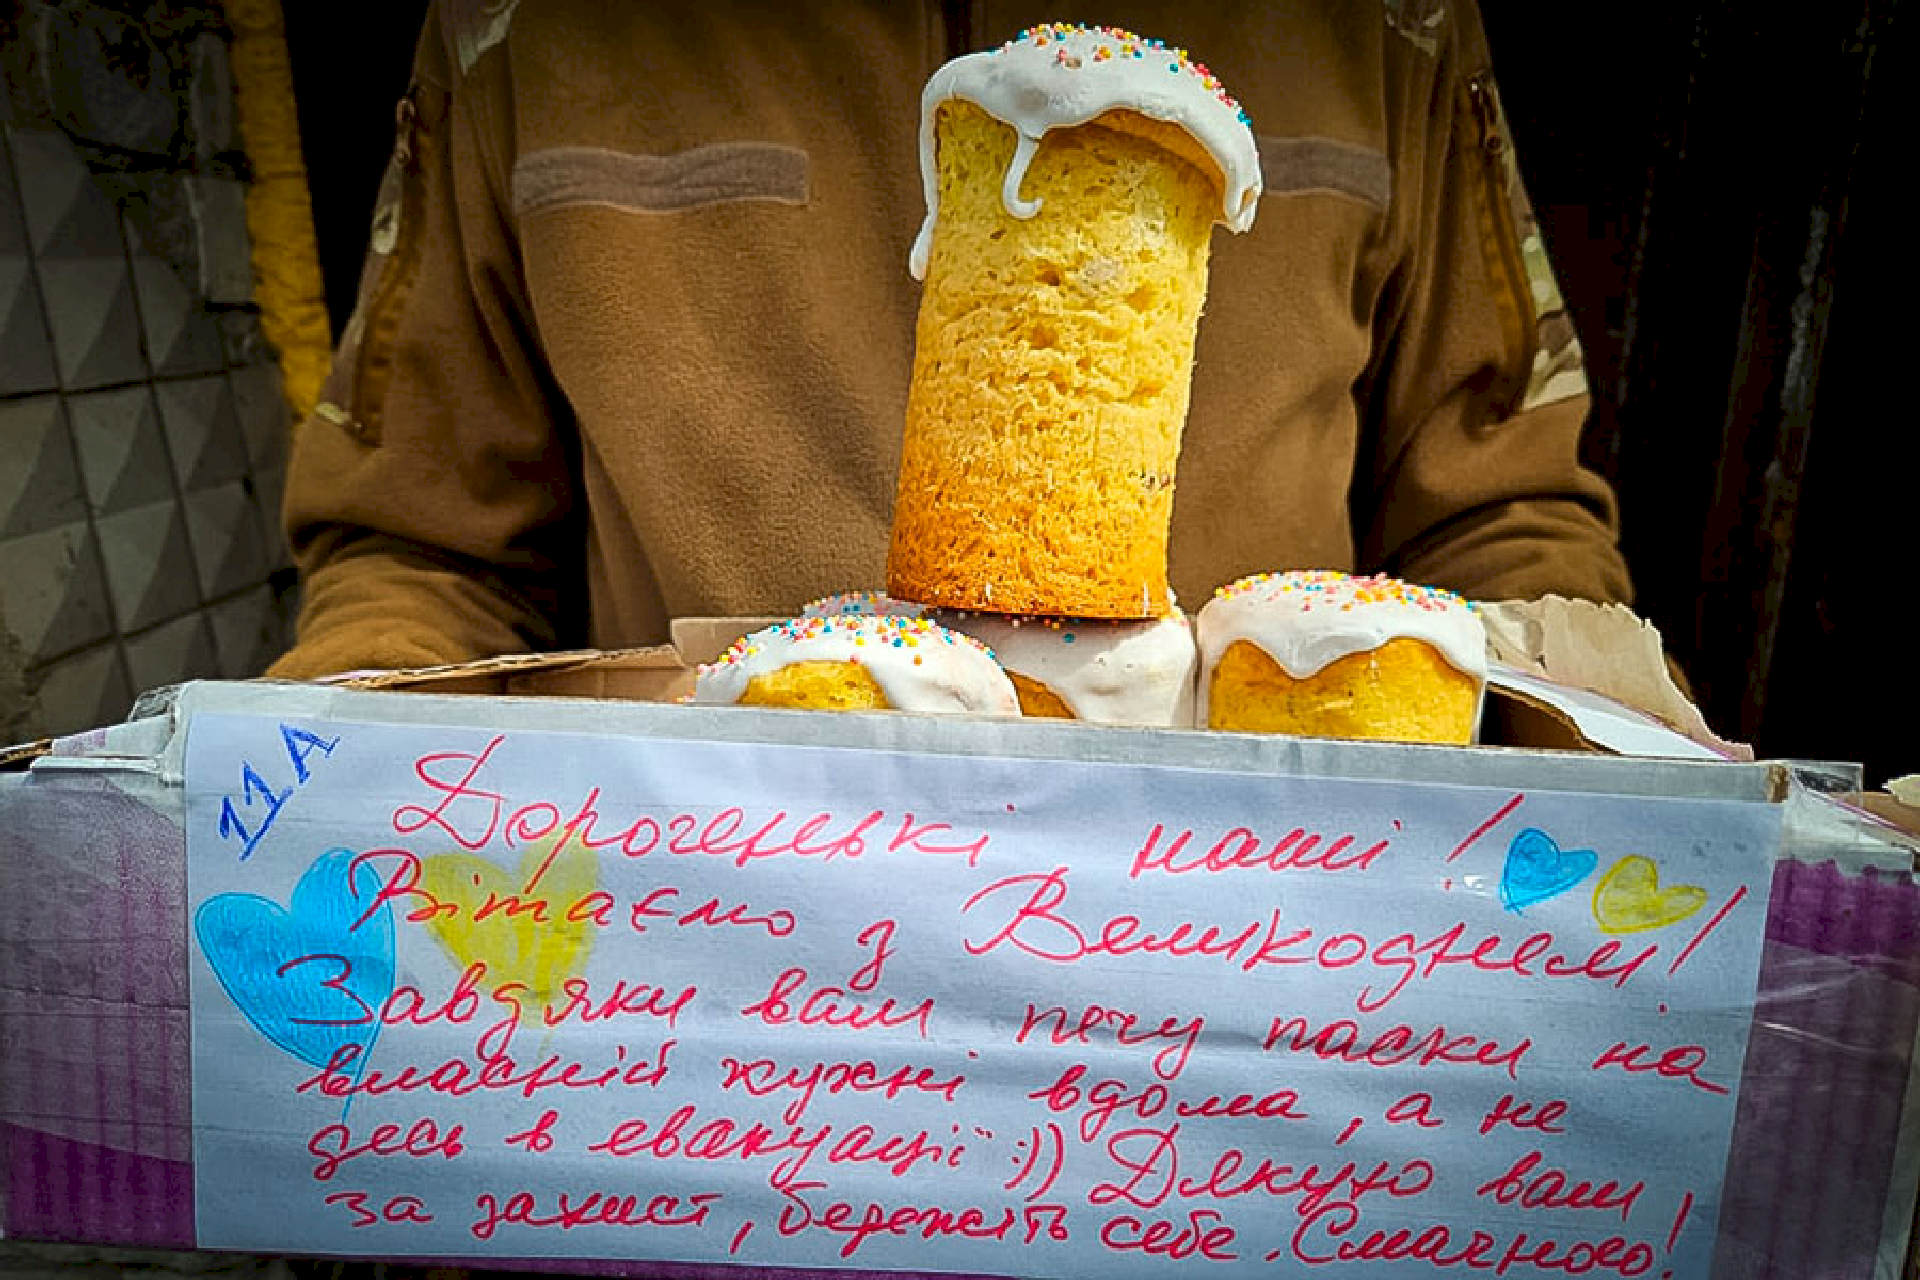 11А
Дорогенькі наші!
Вітаємо з Великоднем!
Завдяки вам печу паски на
власній кухні вдома, а не
десь в евакуації :)) Дякую вам
за захист, бережіть себе. Смачного!